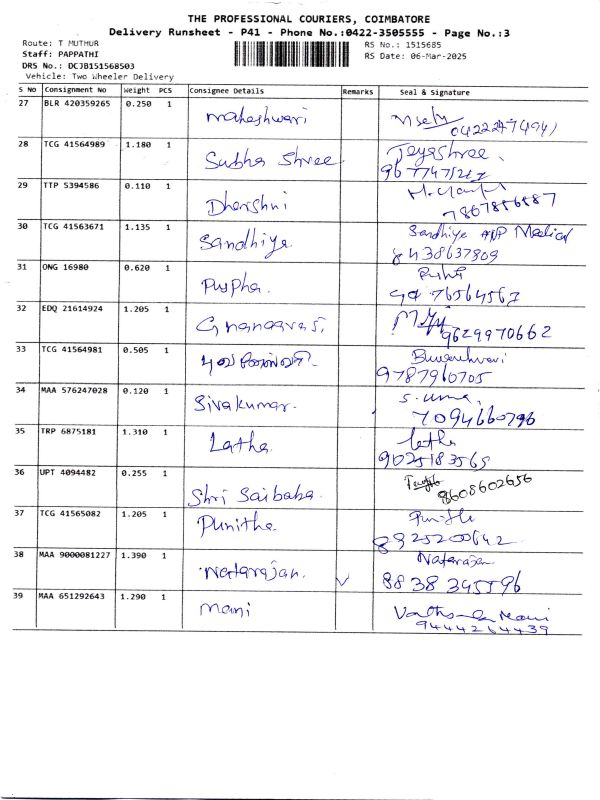 THE PROFESSIONAL COURIERS, COIMBATORE
Delivery Runsheet - P41 - Phone No.:0422-3505555 - Page No.:3
Route: T MUTHUR
RS No.: 1515685
Staff: PAPPATHI
RS Date: 06-Mar-2025
DRS No.: DCJB151568503
Vehicle: Two Wheeler Delivery
S No Consignment No Weight PCS Consignee Details Remarks Seal & Signature
27 BLR 420359265 0.250 1 Maheshwari
28 TCG 41564989 1.180 1 Subha Shree Jeyashree.
29 TTP 5394586 0.110 1 Dharshni
7867856587
30 TCG 41563671 1.135 1 Sandhiya. Sandhiya APP Medical
8438637809
31 ONG 16980 0.620 1 Puspha.
32 EDQ 21614924 1.205 1
9629970662
33 TCG 41564981 0.505 1 Buvaneshwari
9787960705
34 MAA 576247028 0.120 1 Sivakumar. S. uma,
7094660796
35 TRP 6875181 1.310 1 Latha latha
9025183565
36 UPT 4094482 0.255 1 Shri Saibaba.
8608602656
37 TCG 41565082 1.205 1 Punitha. Punitha
8925200642
38 MAA 9000081227 1.390 1 Natarajan. Natarajan
8838345596
39 MAA 651292643 1.290 1 Mani
9444264439